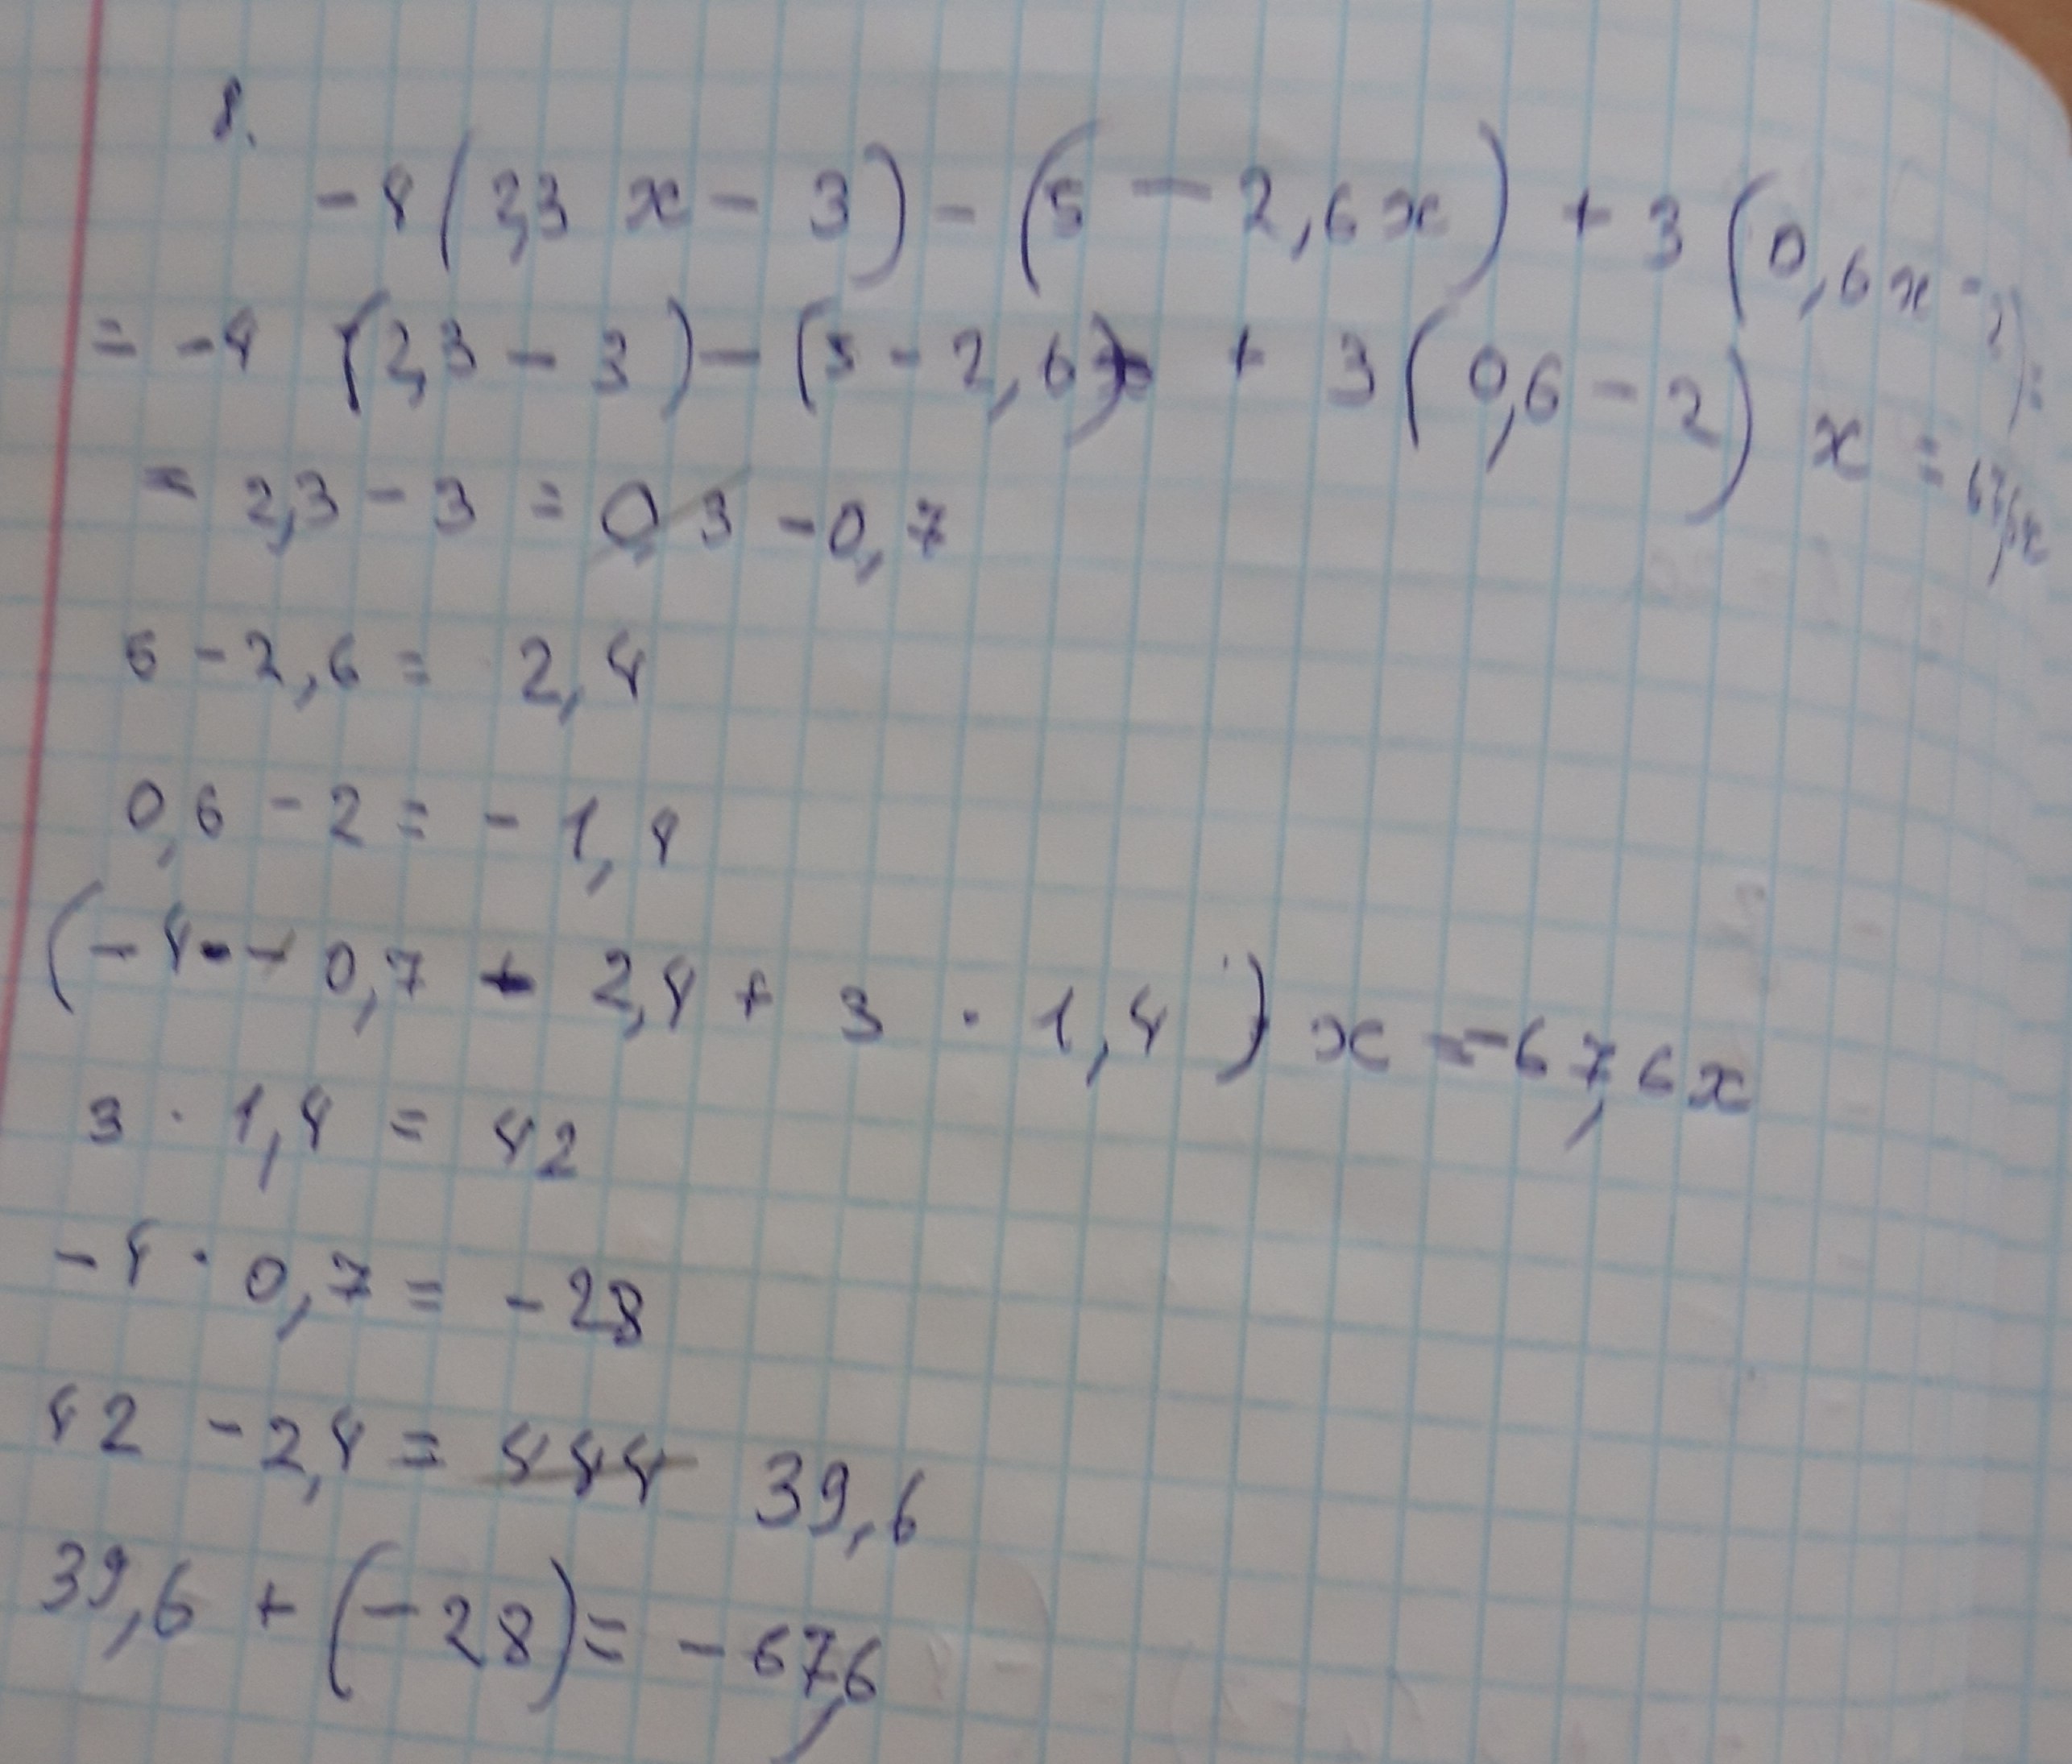 8.
-4(2,3x-3)-(5-2,6x)+3(0,6x-2)=
=-4(2,3-3)-(5-2,6)+3(0,6-2)x=67,6x
=2,3-3=0,3 -0,7
5-2,6= 2,4
0,6-2=-1,4
(-4·-0,7-2,4+3·1,4)x=-67,6x
3·1,4=42
-4·0,7=-28
42-2,4=444 39,6
39,6+(-28)=-67,6